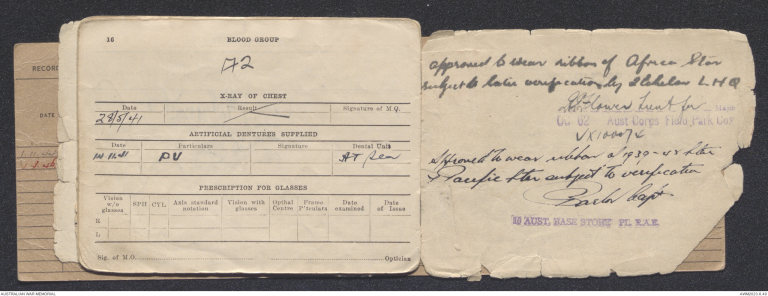 RECORD
DATE
16
BLOOD GROUP
A2
X-RAY OF CHEST
Date Result Signature of M.O.
28/5/41
ARTIFICIAL DENTURES SUPPLIED
Date Particulars Signature Dental Unit
PU At Sea
PRESCRIPTION FOR GLASSES
Vision w/o glasses SPH CYL Axis standard notation Vision with glasses Opthal Centre Frame P'ticulars Date examined Date of Issue
R
L
Sig. of M.O. Optician
approved to wear ribbon of Africa Star
subject to later verification by 2 Echelon L.H.Q
for Major
OC 62 Aust Corps Field Park Coy
VX100074
Approved to wear ribbon of 1939-45 Star
& Pacific Star subject to verification
Capt
10 AUST. BASE STORE PL. R.A.E.
AUSTRALIAN WAR MEMORIAL